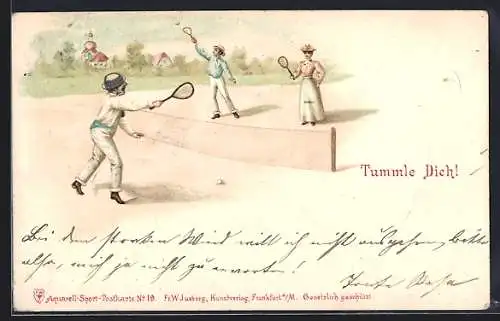 Tummle Dich!
Bei dem starken Wind will ich nicht ausgehen, bitte
also, mich ja nicht zu erwarten!
Tante
Aquarell-Sport-Postkarte Nº 19. Fr. W. Juxberg, Kunstverlag, Frankfurt a/M. Gesetzlich geschützt